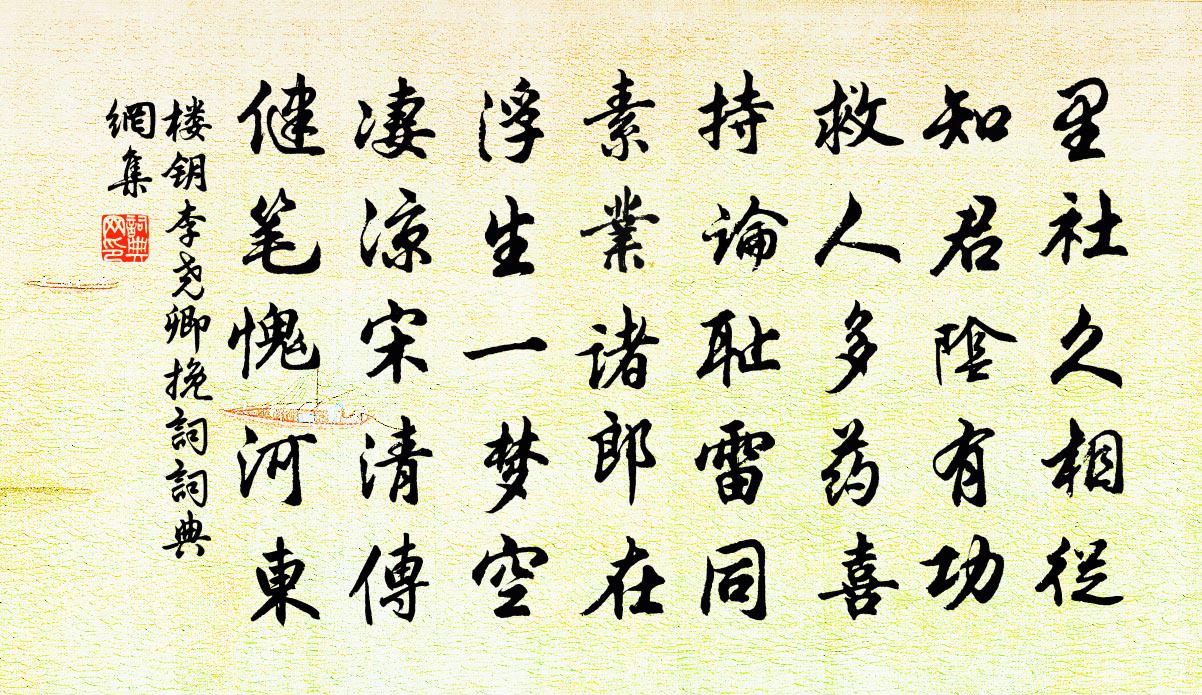 里社久相從
知君陰有功
救人多药喜
持論耻雷同
素業諸郎在
浮生一梦空
凄凉宋清傳
健笔愧河東
楼钥李尧卿挽詞詞典
網集
詞典
网印